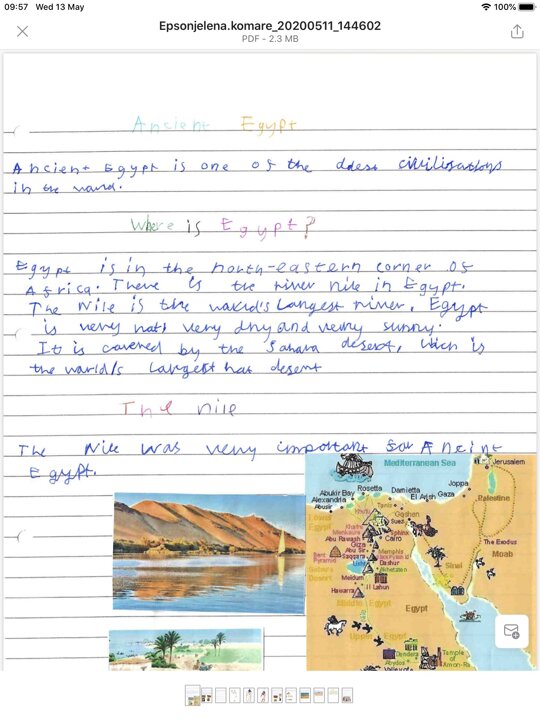 09:57 Wed 13 May
100%
Epsonjelena.komare_20200511_144602
PDF - 2.3 MB
Ancient Egypt
Ancient Egypt is one of the oldest civilisations
in the world.
Where is Egypt?
Egypt is in the north-eastern corner of
Africa. There is the river nile in Egypt.
The Nile is the world's largest river. Egypt
is very hot, very dry and very sunny.
It is covered by the Sahara desert, wich is
the world's largest hot desert
The nile
The Nile was very important for Ancint
Egypt.
Mediterranean Sea
Jerusalem
Abukir Bay
Rosetta
Damietta
El Arish
Gaza
Joppa
Alexandria
Abusir
Tanis
Goshen
Palestine
Lower
Egypt
Khufu
Khafre
Menkaure
Suez
Sphinx
Abu Rawash
Giza
Cairo
Abu Sir
Memphis
Saqqara
Bent
Pyramid
Dashur
The Exodus
Moab
Sinai
Meidum
Il Lahun
Hawarra
Desert
Middle Egypt
Egypt
Upper Egypt
Dendera
Abydos
Temple
of
Amon-Ra